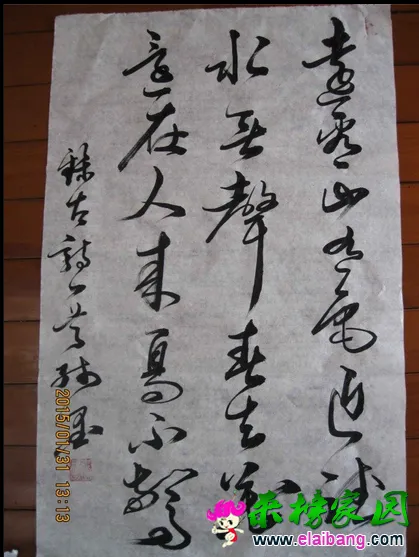 遠看山有色近聽
水無聲春去花
還在人來鳥不驚
錄古詩一首
2015/01/31 13:13
来榜家园
www.elaibang.com